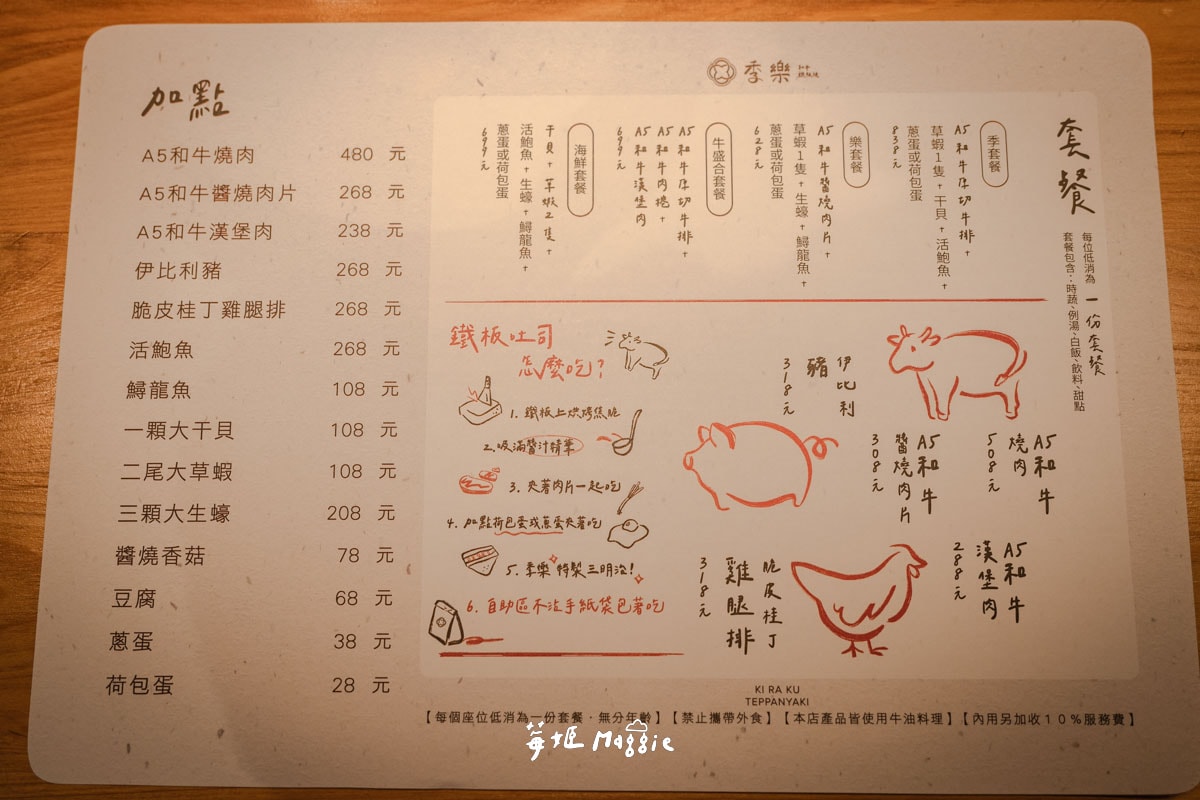 加點
A5和牛燒肉 480 元
A5和牛醬燒肉片 268 元
A5和牛漢堡肉 238 元
伊比利豬 268 元
脆皮桂丁雞腿排 268 元
活鮑魚 268 元
鱘龍魚 108 元
一顆大干貝 108 元
二尾大草蝦 108 元
三顆大生蠔 208 元
醬燒香菇 78 元
豆腐 68 元
蔥蛋 38 元
荷包蛋 28 元
季樂
套餐
每位低消為 一份套餐
套餐包含：時蔬、例湯、白飯、飲料、甜點
季套餐
A5和牛厚切牛排+
草蝦1隻+干貝+活鮑魚+
蔥蛋或荷包蛋
838元
樂套餐
A5和牛醬燒肉片+
草蝦1隻+生蠔+鱘龍魚+
蔥蛋或荷包蛋
628元
牛盛合套餐
A5和牛厚切牛排+
A5和牛肉捲+
A5和牛漢堡肉
699元
海鮮套餐
干貝+草蝦2隻+
活鮑魚+生蠔+鱘龍魚+
蔥蛋或荷包蛋
699元
鐵板吐司
怎麼吃?
1. 鐵板上烘烤焦脆
2. 吸滿醬汁精華
3. 夾著肉片一起吃
4. 加點荷包蛋或蔥蛋夾著吃
5. 季樂 特製三明治!
6. 自助區不沾手紙袋包著吃
A5和牛
燒肉
508元
A5和牛
醬燒肉片
308元
伊比利
豬
318元
A5和牛
漢堡肉
288元
脆皮桂丁
雞腿排
318元
KI RA KU
TEPPANYAKI
【每個座位低消為一份套餐，無分年齡】【禁止攜帶外食】【本店產品皆使用牛油料理】【內用另加收10%服務費】
莓姬 Maggie